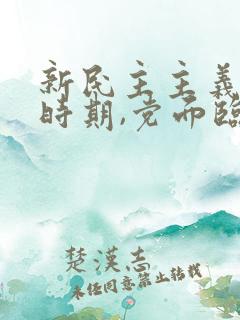 新民主主義
時期,党而臨
楚漢志
未经同意禁止转载